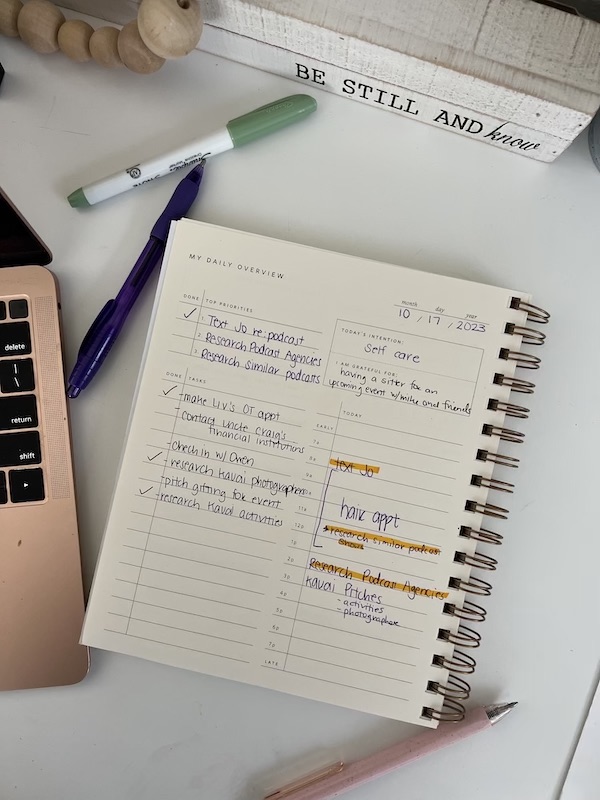 BE STILL AND know
MY DAILY OVERVIEW
month day year
10 / 17 / 2023
DONE TOP PRIORITIES
1 Text Jo re: podcast
2 Research Podcast Agencies
3 Research Similar podcasts
TODAY'S INTENTION:
Self care
I AM GRATEFUL FOR:
having a sitter for an
upcoming event w/mike and friends
DONE TASKS
- make Liv's OT appt
- contact Uncle Craig's
financial institutions
- Check in w/ Owen
- research Kauai photographers
- pitch gifting for event
- research Kauai activities
TODAY
EARLY
7a
8a
text Jo
9a
11a
hair appt
12p
* research similar podcast
shows
2p
Research Podcast Agencies
3p
Kauai Pitches
4p
- activities
- photographer
5p
6p
7p
LATE
delete
|
\
return
shift